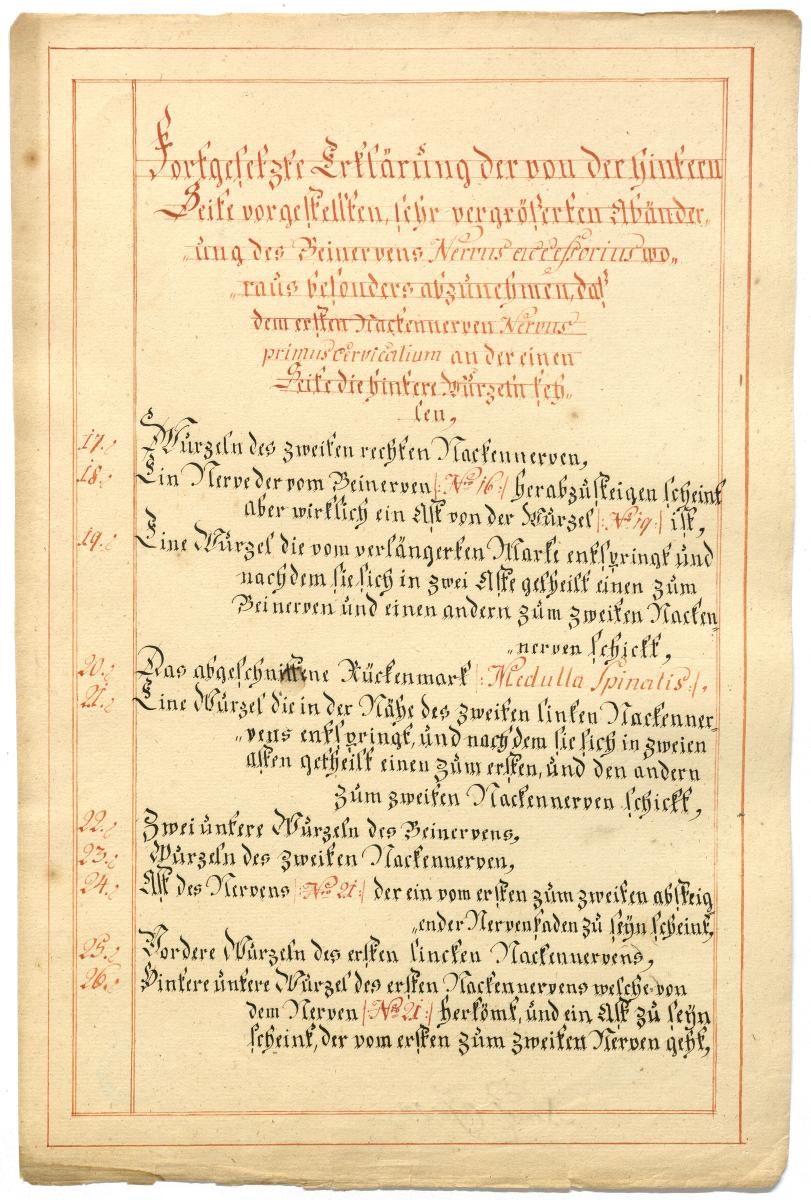 Fortgesetzte Erklärung der von der hintern
Seite vorgestellten, sehr vergröserten Abänder„
„ung des Beinervens Nervus accessorius wo„
„raus besonders abzunehmen, daß
dem ersten Nackennerven Nervus
primus cervicalium an der einen
Seite die hintere Würzeln feh-
len,
17. Würzeln des zweiten rechten Nackennerven,
18. Ein Nerve der vom Beinerven |: No 16 :| herabzusteigen scheint
aber wirklich ein Ast von der Würzel |: No 19 :| ist,
19. Eine Würzel die vom verlängerten Marke entspringt und
nachdem sie sich in zwei Äste getheilt einen zum
Beinerven und einen andern zum zweiten Nacken-
„nerven schickt,
20. Das abgeschnittene Rückenmark |: Medulla Spinalis :|,
21. Eine Würzel die in der Nähe des zweiten linken Nackenner-
„vens entspringt, und nachdem sie sich in zweien
asten getheilt einen zum ersten, und den andern
zum zweiten Nackennerven schickt,
22. Zwei untere Würzeln des Beinervens,
23. Würzeln des zweiten Nackennerven,
24. Ast des Nervens |: No 21 :| der ein vom ersten zum zweiten absteig
„ender Nervenfaden zu seÿn scheint,
25. Vordere Würzeln des ersten lincken Nackennervens,
26. Hintere untere Würzel des ersten Nackennervens welche von
dem Nerven |: No 21 :| herkömt, und ein Ast zu seÿn
scheint, der vom ersten zum zweiten Nerven geht,